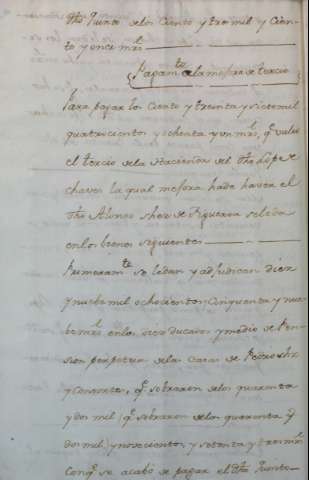 dho Quinto delos Ciento y tres mil y Cien-
to y once mrs
Pagamto de la mejora de tercio
Para pagar los Ciento y treinta y siete mil
quatrocientos y ochenta y un mrs q. vale
el tercio de la Hacienda del dho Lope de
chaves la qual mejora hade haver el
dho Alonso de Figueroa se le da
en los bienes siguientes
Primeramte se le dan y adjudican diez
y nuebe mil ochocientos Cinquenta y nue-
be mrs en los ducados y medio de Pen-
sion perpetua de la Casa de Pedro
y Consortes, q. sobraron de los quarenta
y dos mil (q. sobraron de los quarenta y
dos mil) y novecientos y setenta y tres mrs
Conq. se acabò de pagar el dho quinto